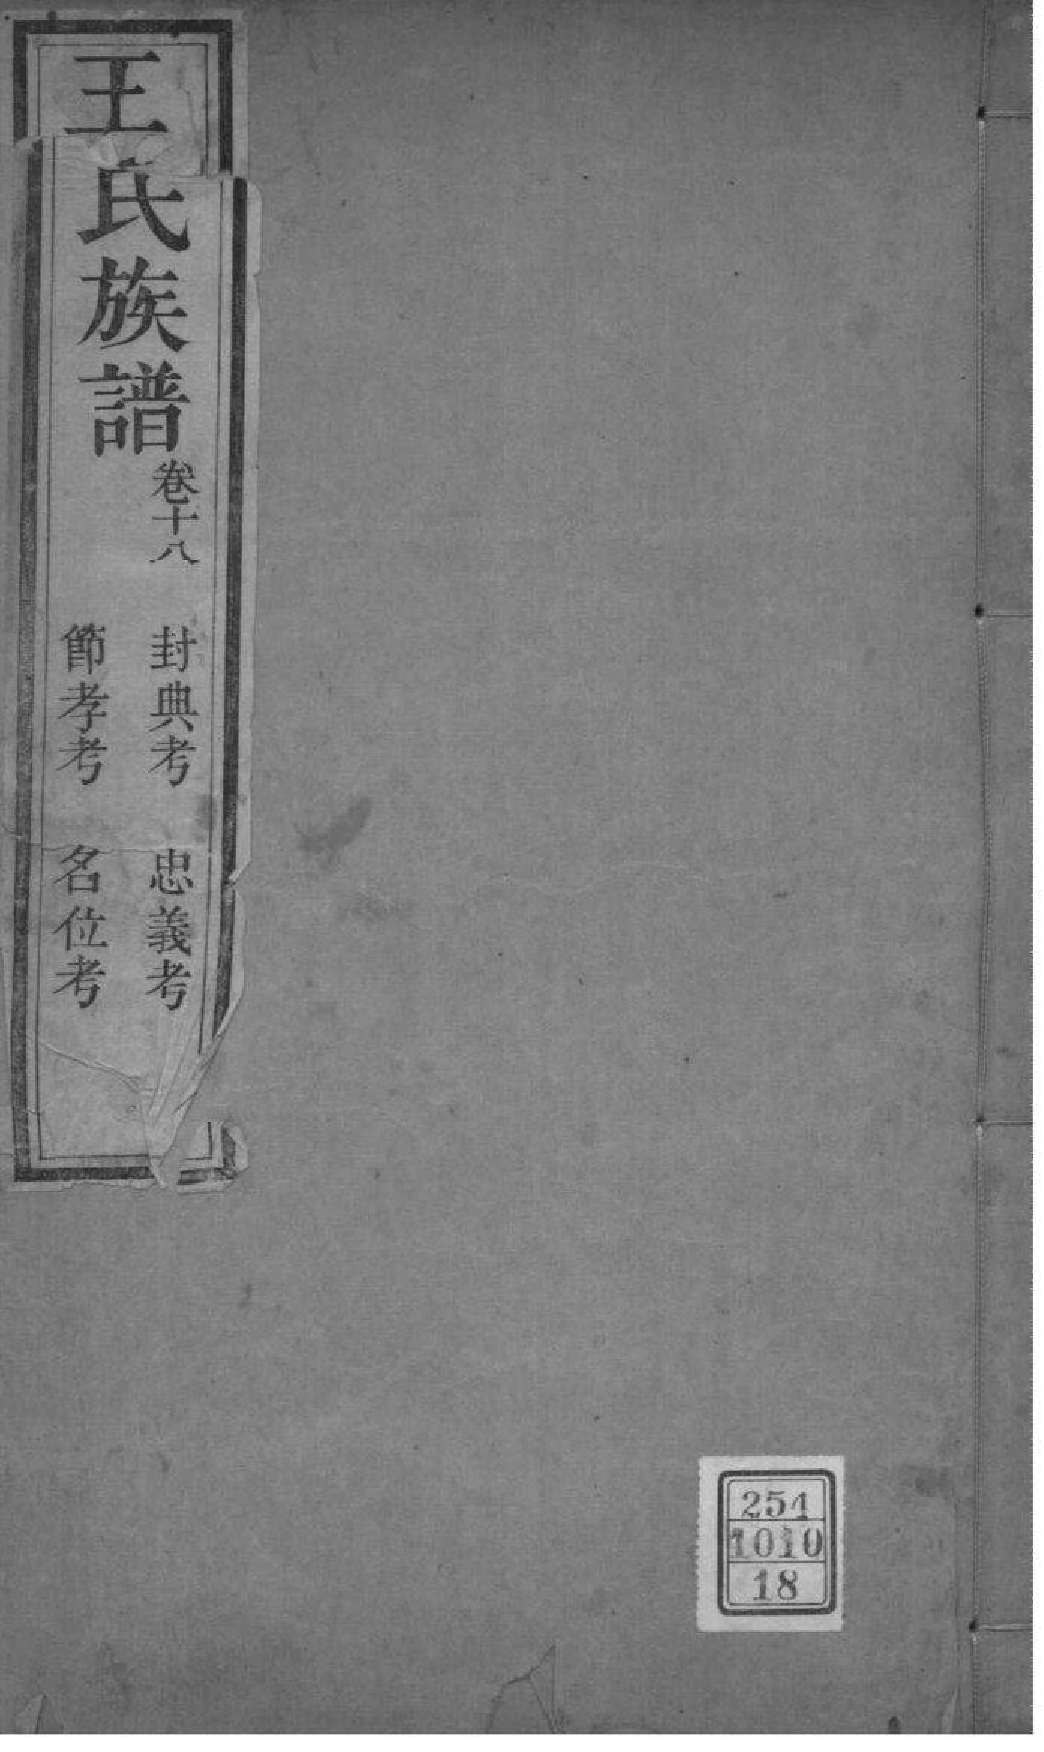 王氏族譜
卷十八
封典考 忠義考
節孝考 名位考
254
1010
18